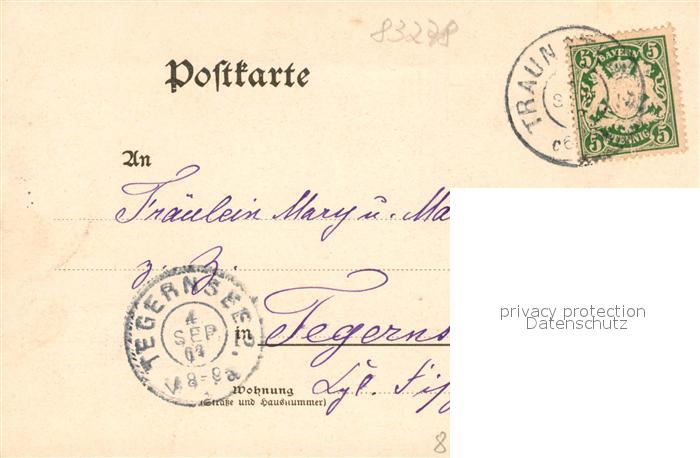 83278
Postkarte
TRAUN
5 BAYERN 5
5 PFENNIG 5
An
Fräulein Mary u. Ma
z. Z.
TEGERNSEE
4 SEP.
in Tegerns
Wohnung
(Straße und Hausnummer)
8
privacy protection
Datenschutz